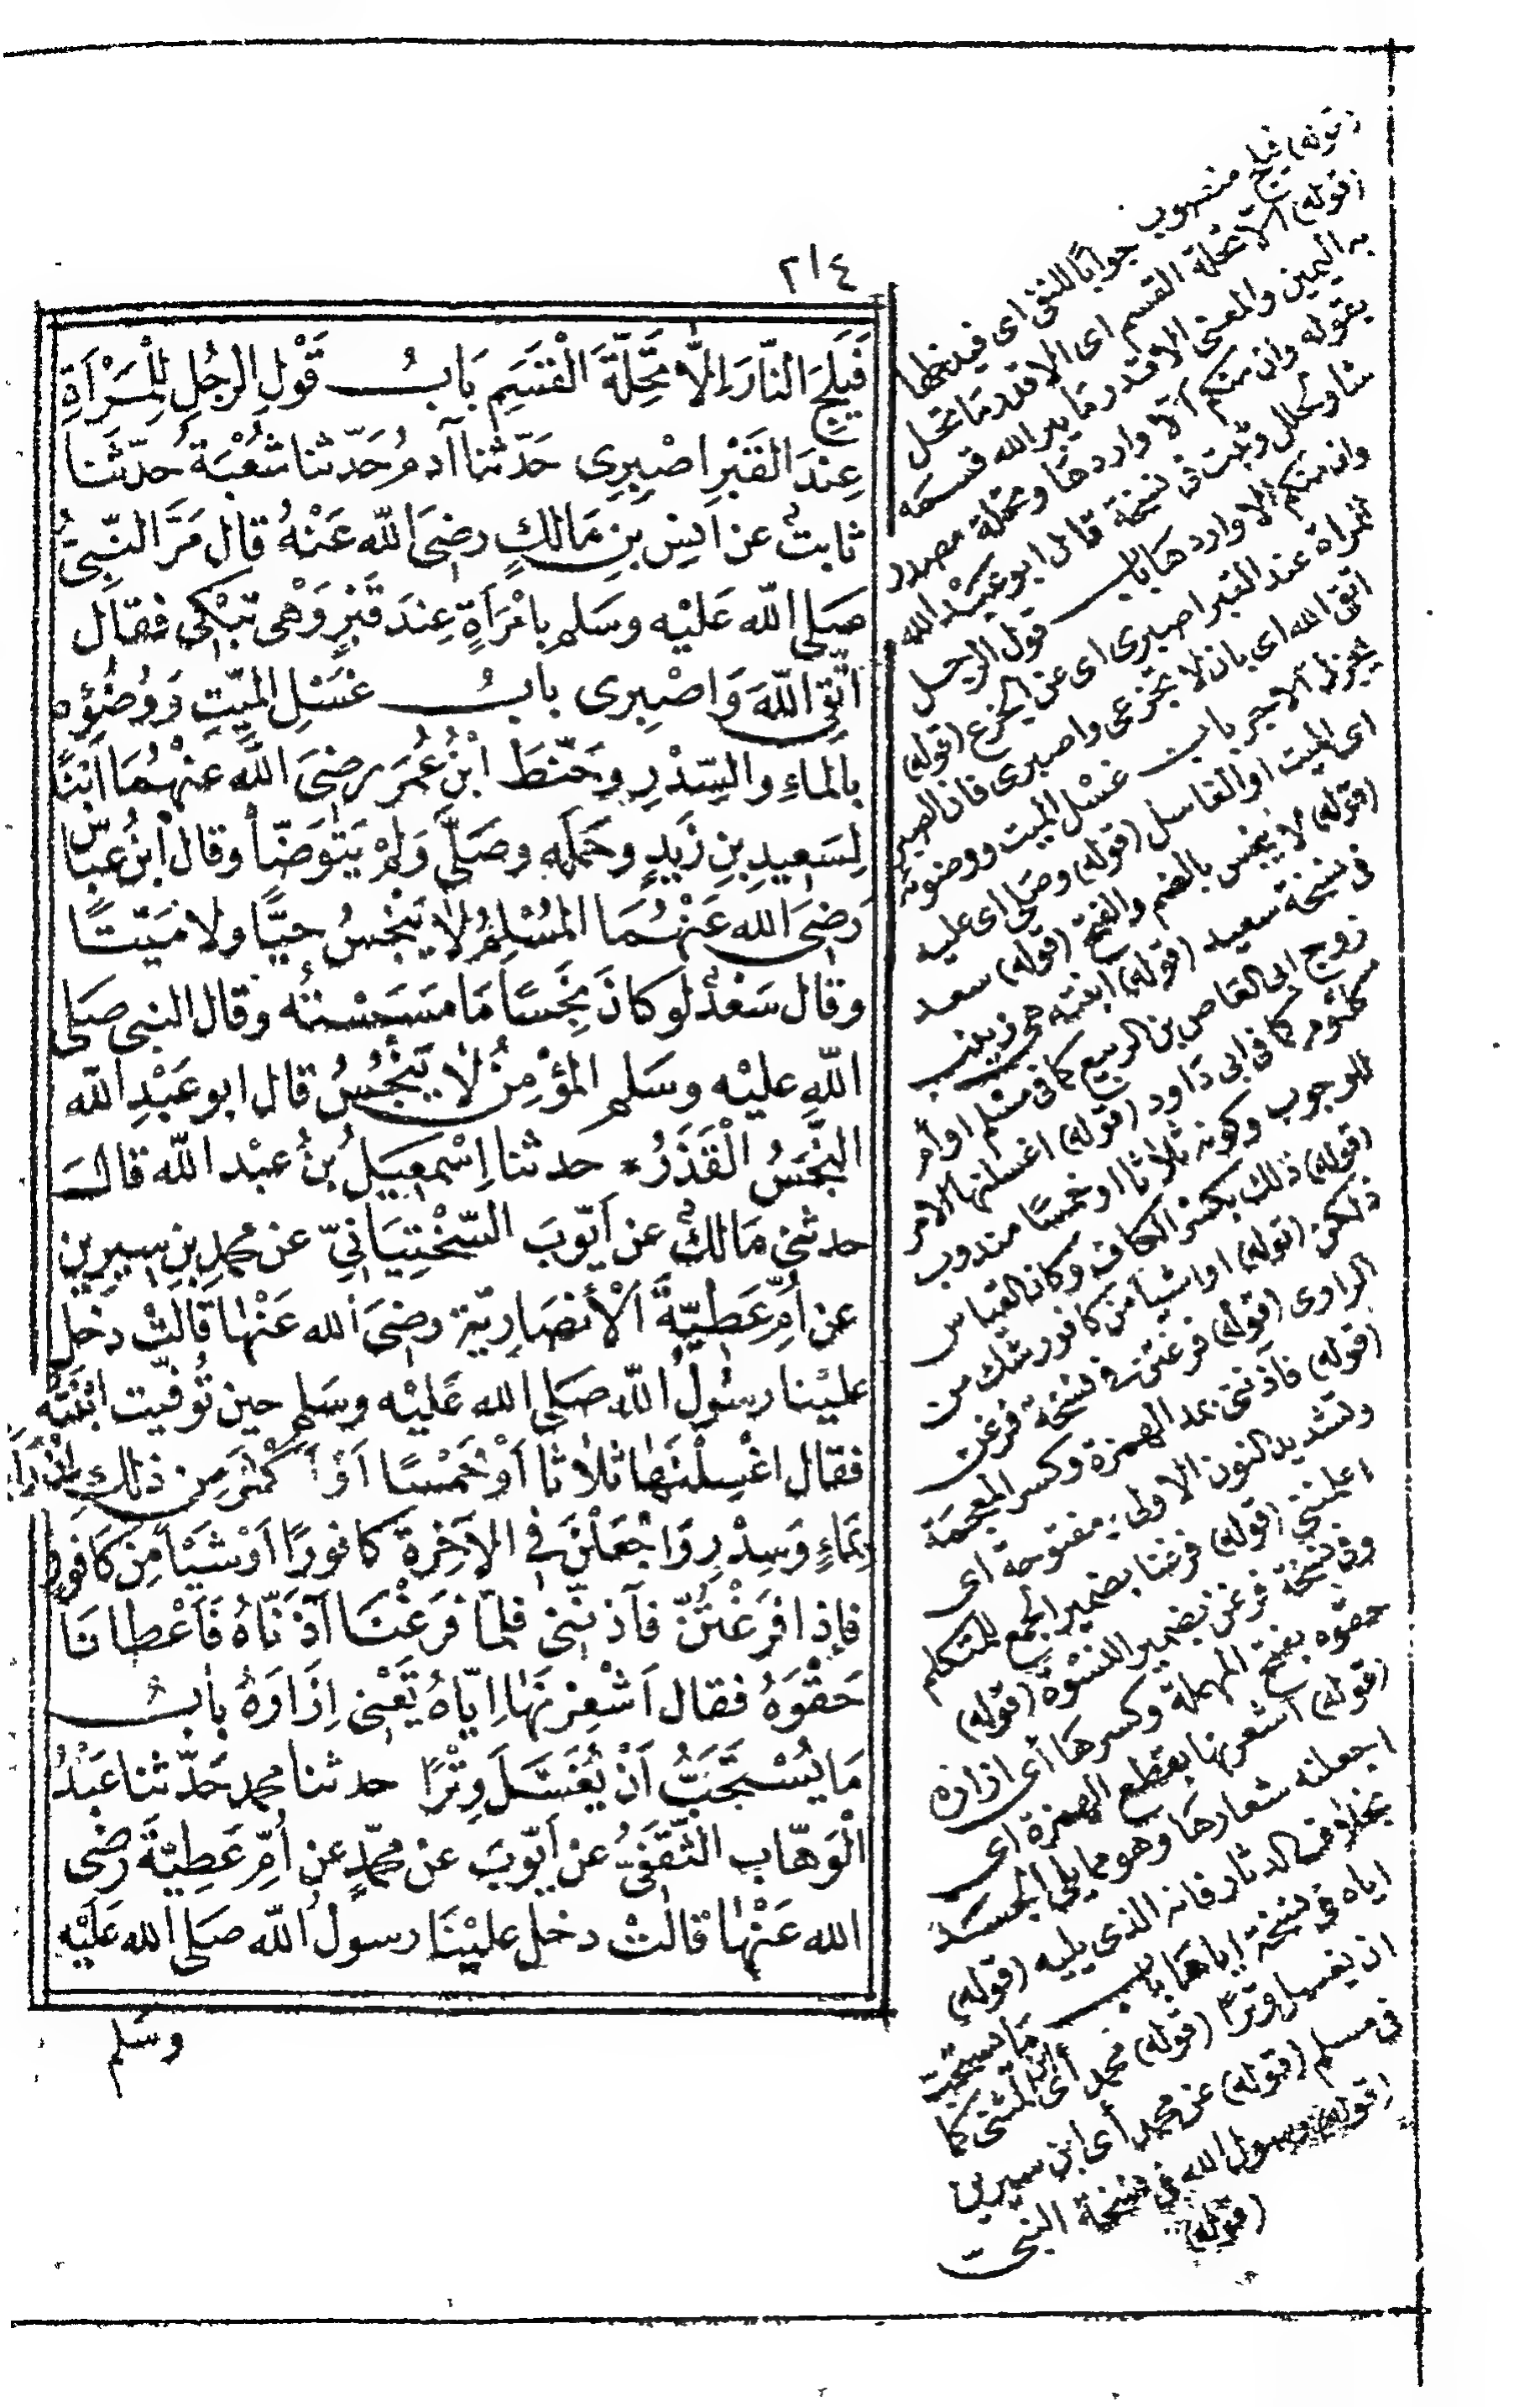 ٢١٤
فَيَلِجَ النَّارَ إِلَّا تَحِلَّةَ الْقَسَمِ بَابُ قَوْلِ الرَّجُلِ لِلْمَرْأَةِ
عِنْدَ الْقَبْرِ اصْبِرِى حَدَّثنا آدمُ حَدّثنا شُعْبَةُ حَدّثَنا
ثابتٌ عن أنسِ بنِ مَالكٍ رضىَ الله عَنْهُ قال مَرَّ النَّبِىُّ
صَلى الله عَليْه وسَلم بامْرَأةٍ عِنْدَ قَبْرٍ وَهْىَ تَبْكِى فقال
اتَّقِى اللّهَ وَاصْبِرِى بابُ غسْلِ الميّتِ وَوُضُوُئِهِ
بالماءِ والسِّدْرِ وحَنّطَ ابْنُ عُمَرَ رضىَ الله عنْهُمَا ابْنًا
لِسَعِيدِ بنِ زَيدٍ وحَمَلَه وصَلَّى وَلمْ يَتَوَضّأ وقال ابْنُ عبّاس
رَضىَ الله عَنْهُمَا المُسْلِمُ لا يَنْجُسُ حيًّا ولا مَيّتًا
وقال سَعْدٌ لو كانَ نَجِسًا مَا مَسَسْتُه وقال النبى صَلى
اللّه عليْه وسَلم المؤْمِنُ لا يَنْجُسُ قال ابو عَبْدِ الله
النَّجَسُ الْقَذَرُ * حدثنا إسْمعِيلُ بنُ عبْد الله قالَ
حدثنى مَالكٌ عن أيّوبَ السّخْتِيَانِىِّ عن محمدِ بنِ سِيرِين
عن أمِّ عَطيّةَ الْأنْصَارِيّة رضىَ الله عَنْها قالَتْ دخل
عليْنا رسُولُ اللّه صَلى الله عَليْه وسَلم حين تُوُفِّيت ابْنَتُه
فقال اغْسِلْنَها ثلاثا أوْ خَمْسًا أوْ أكْثَرَ من ذلك إنْ رَأَيـ
بمَاءٍ وَسِدْرٍ وَاجْعَلْنَ فى الآخِرَة كافورًا أوْ شَيْأ مِنْ كَافورٍ
فإذا فَرَغْتُنّ فآذنّنى فلمّا فرَغْنَا آذَنّاهُ فَأعْطانَا
حَقْوَهُ فقال أشْعِرْنَها إيّاهُ تَعْنى إزَارَهُ بابُ
مَا يُسْتَحَبُّ أنْ يُغْسَلَ وِتْرًا حدثنا محمد حَدّثنا عَبْدُ
الْوَهّاب الثّقَفِىُّ عن أيّوبَ عن محمّدٍ عن أُمِّ عَطِيّةَ رَضىَ
الله عَنْها قالتْ دخل عليْنَا رسولُ اللّه صَلى الله عَلَيْه
وسَلم
(قوله) فيلج منصوب جوابًا للنفى اى فيدخلها
(قوله) الا تحلة القسم اى الا قدر ما تحل
به اليمين والمعنى الا قدر ما يبر الله قسمه
بقوله وان منكم الا واردها وتحلة مصدر
وثبت فى نسخة قال ابو عبد الله
وان منكم الا واردها باب قول الرجل
للمرأة عند القبر اصبرى اى عن الجزع (قوله)
اتقى الله اى بان لا تجزعى واصبرى فان الصبر
يجزل الاجر باب غسل الميت ووضوئه
اى الميت او الغاسل (قوله) وصلى اى عليه
(قوله) لا ينجس بالضم والفتح (قوله) سعد
فى نسخة سعيد (قوله) ابنته هى زينب
زوج ابى العاص بن الربيع كما فى مسلم او أم
كلثوم كما فى ابى داود (قوله) اغسلنها الامر
للوجوب وكونه ثلاثا او خمسا مندوب
(قوله) ذلك بكسر الكاف وكان القياس
ذلكن (قوله) او شيأ من كافور شك من
الراوى (قوله) فرغتن فى نسخة فرغن
(قوله) فآذننى بمد الهمزة وكسر المعجمة
وتشديد النون الاولى مفتوحة اى
اعلمننى (قوله) فرغنا بضمير الجمع للمتكلم
وفى نسخة فرغن بضمير النسوة (قوله)
حقوه بفتح المهملة وكسرها أى ازاره
(قوله) أشعرنها بقطع الهمزة اى
اجعلنه شعارها وهو مما يلى الجسد
بخلاف الدثار فانه الذى يليه (قوله)
اياه فى نسخة اياها باب ما يستحب
ان يغسل وترا (قوله) محمد أى ابن المثنى كما
فى مسلم (قوله) عن محمد أى ابن سيرين
(قوله) رسول الله فى نسخة النبى
(قوله)